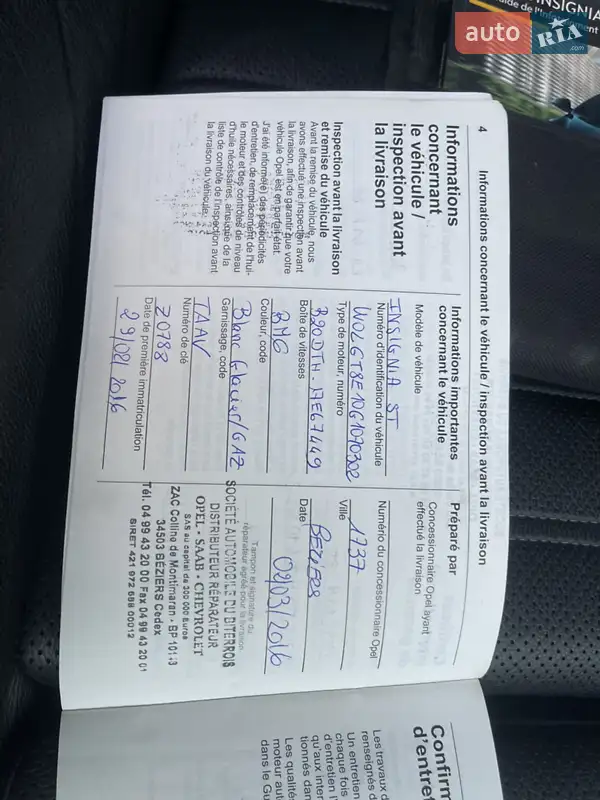 INSIGNIA
auto RIA
.com
4 Informations concernant le véhicule / inspection avant la livraison
Informations
concernant
le véhicule /
inspection avant
la livraison
Inspection avant la livraison
et remise du véhicule
Avant la remise du véhicule, nous
avons effectué une inspection avant
la livraison, afin de garantir que votre
véhicule Opel est en parfait état.
J'ai été informé(e) des périodicités
d'entretien, de remplacement de l'hui-
le moteur et des contrôles de niveau
d'huile nécessaires, ainsi que de la
liste de contrôle de l'inspection avant
la livraison du véhicule.
Informations importantes
concernant le véhicule
Modèle de véhicule
INSIGNIA ST
Numéro d'identification du véhicule
W0LGT8E10G1070302
Type de moteur, numéro
B20DTH.17E67449
Boîte de vitesses
BM6
Couleur, code
Blanc Glacier/GAZ
Garnissage, code
TAAV
Numéro de clé
Z0788
Date de première immatriculation
29/02/2016
Préparé par
Concessionnaire Opel ayant
effectué la livraison
Numéro du concessionnaire Opel
1737
Ville
BEZIERS
Date
02/03/2016
Tampon et signature du
réparateur agréé pour la livraison
SOCIÉTÉ AUTOMOBILE DU BITERROIS
DISTRIBUTEUR RÉPARATEUR
OPEL - SAAB - CHEVROLET
SAS au capital de 300 000 Euros
ZAC Colline de Montimaran - BP 10113
34503 BÉZIERS Cedex
Tél. 04 99 43 20 00 Fax 04 99 43 20 01
SIRET 421 072 688 00012
Confirm
d'entre
Les travaux d
renseignés d
Un entretien
chaque fois
d'entretien l'
qu'aux inter
tionnés dan
Les qualité
moteur aut
dans le Gu